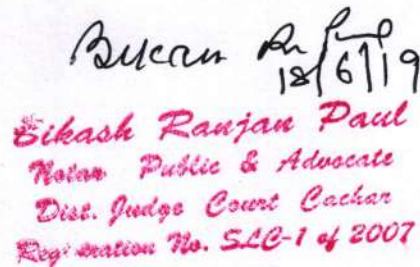 Bikash Ra Paul
18/6/19
Bikash Ranjan Paul
Notar Public & Advocate
Dist. Judge Court Cachar
Registration No. SLC-1 of 2007